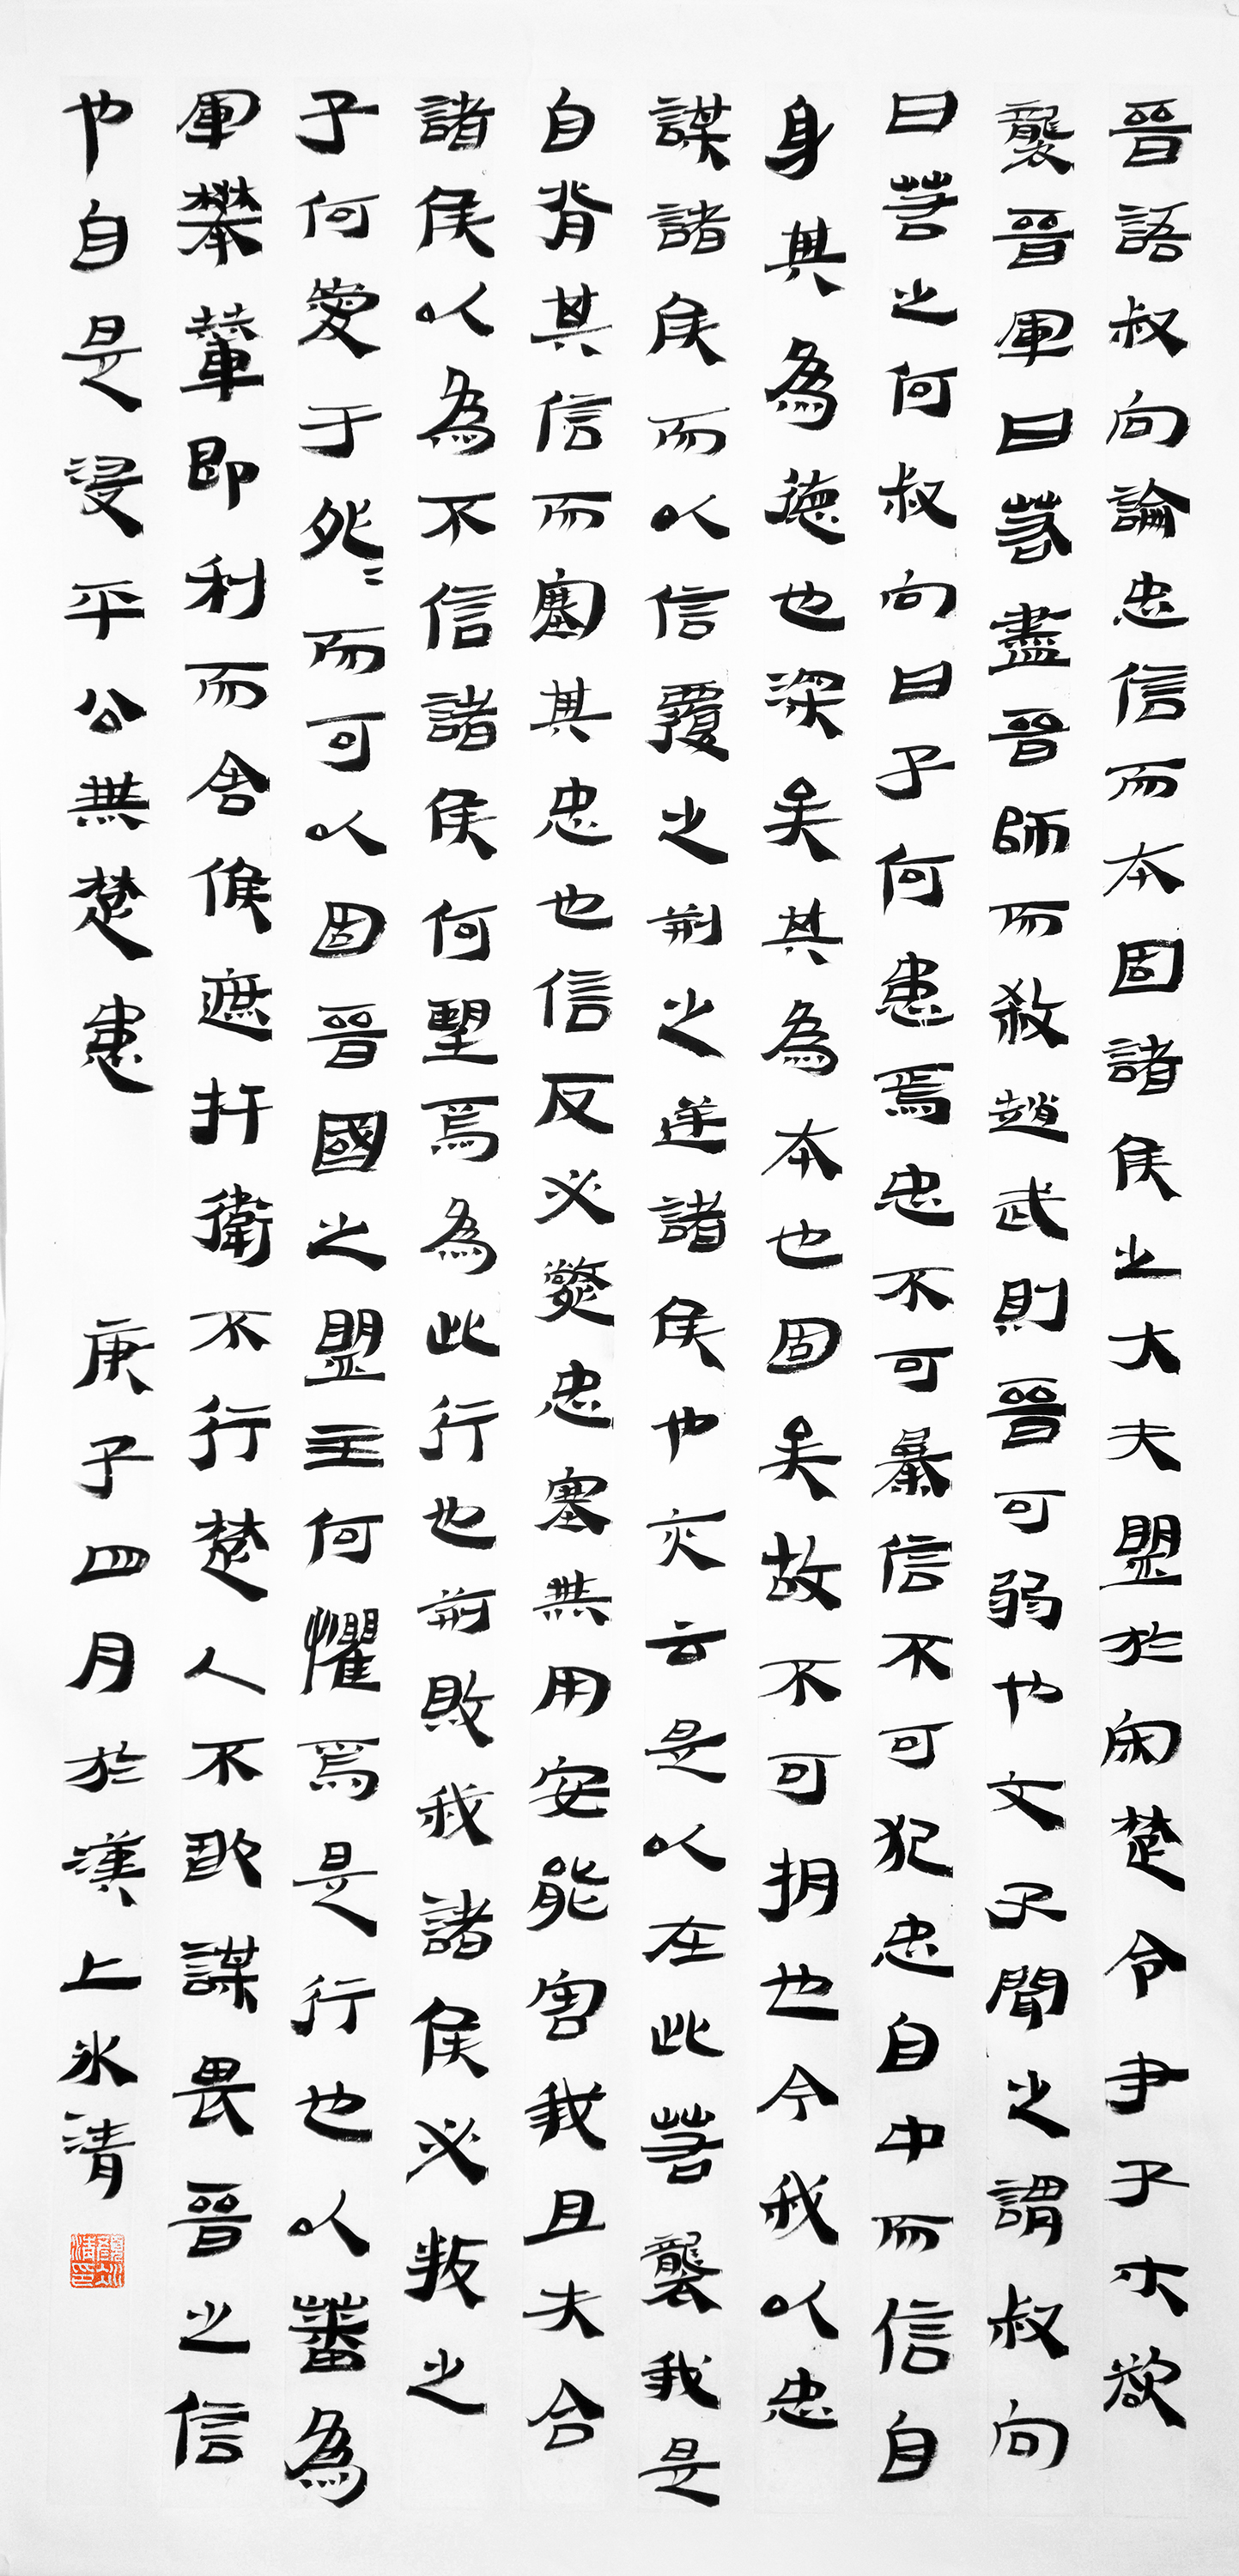 晉語叔向論忠信而本固諸侯之大夫盟於宋楚令尹子木欲
襲晉軍曰若盡晉師而殺趙武則晉可弱也文子聞之謂叔向
曰若之何叔向曰子何患焉忠不可暴信不可犯忠自中而信自
身其為德也深矣其為本也固矣故不可抈也今我以忠
謀諸侯而以信覆之荊之逆諸侯也亦云是以在此若襲我是
自背其信而塞其忠也信反必斃忠塞無用安能害我且夫合
諸侯以為不信諸侯何望焉為此行也荊敗我諸侯必叛之
子何愛于死〻而可以固晉國之盟主何懼焉是行也以蕃為
軍攀輦即利而舍候遮扞衛不行楚人不敢謀畏晉之信
也自是沒平公無楚患 庚子四月於漢上冰清